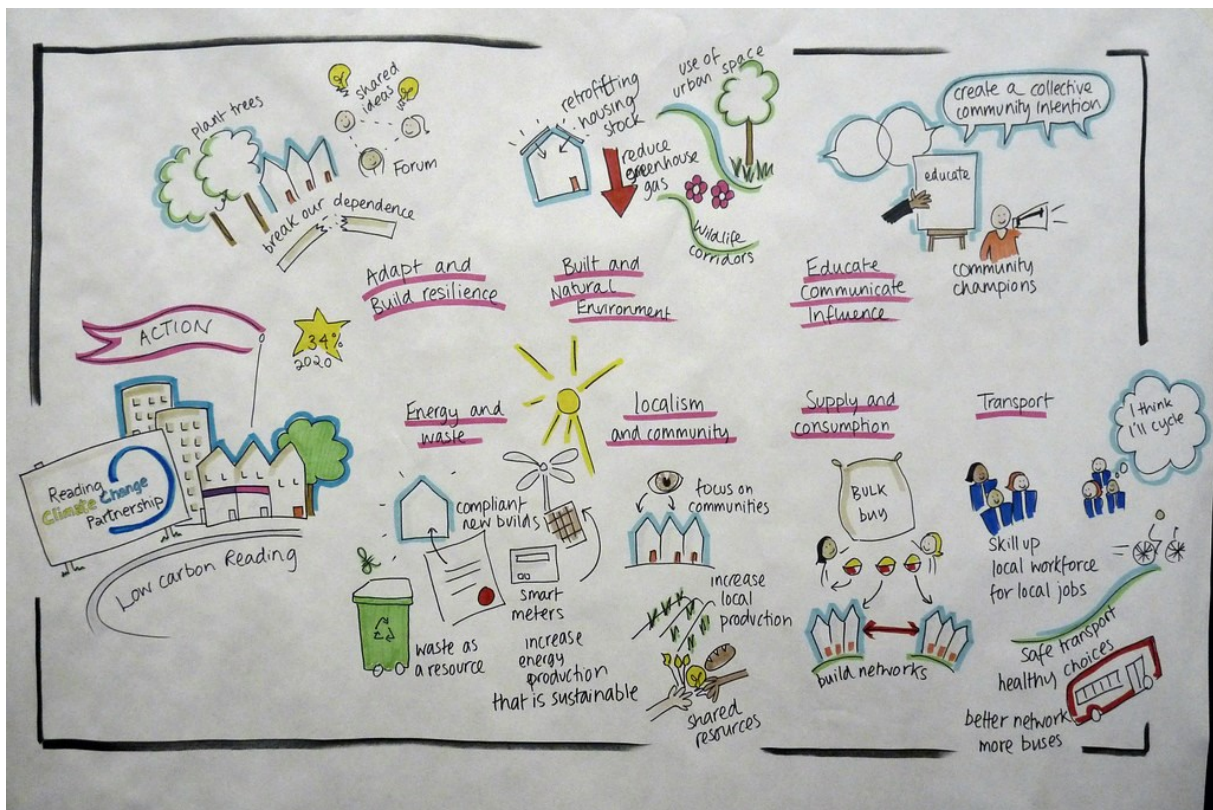 plant trees
shared
ideas
Forum
break our dependence
Adapt and
Build resilience
retrofitting
housing
stock
reduce
greenhouse
gas
use of
urban space
Wildlife
corridors
Built and
Natural
Environment
create a collective
community intention
educate
community
champions
Educate
Communicate
Influence
ACTION
34%
2020
Reading
Climate Change
Partnership
Low carbon Reading
Energy and
waste
compliant
new builds
smart
meters
waste as
a resource
increase
energy
production
that is sustainable
Localism
and community
focus on
communities
increase
local
production
shared
resources
Supply and
consumption
BULK
buy
build networks
Transport
I think
I'll cycle
Skill up
local workforce
for local jobs
Safe transport
healthy choices
better network
more buses